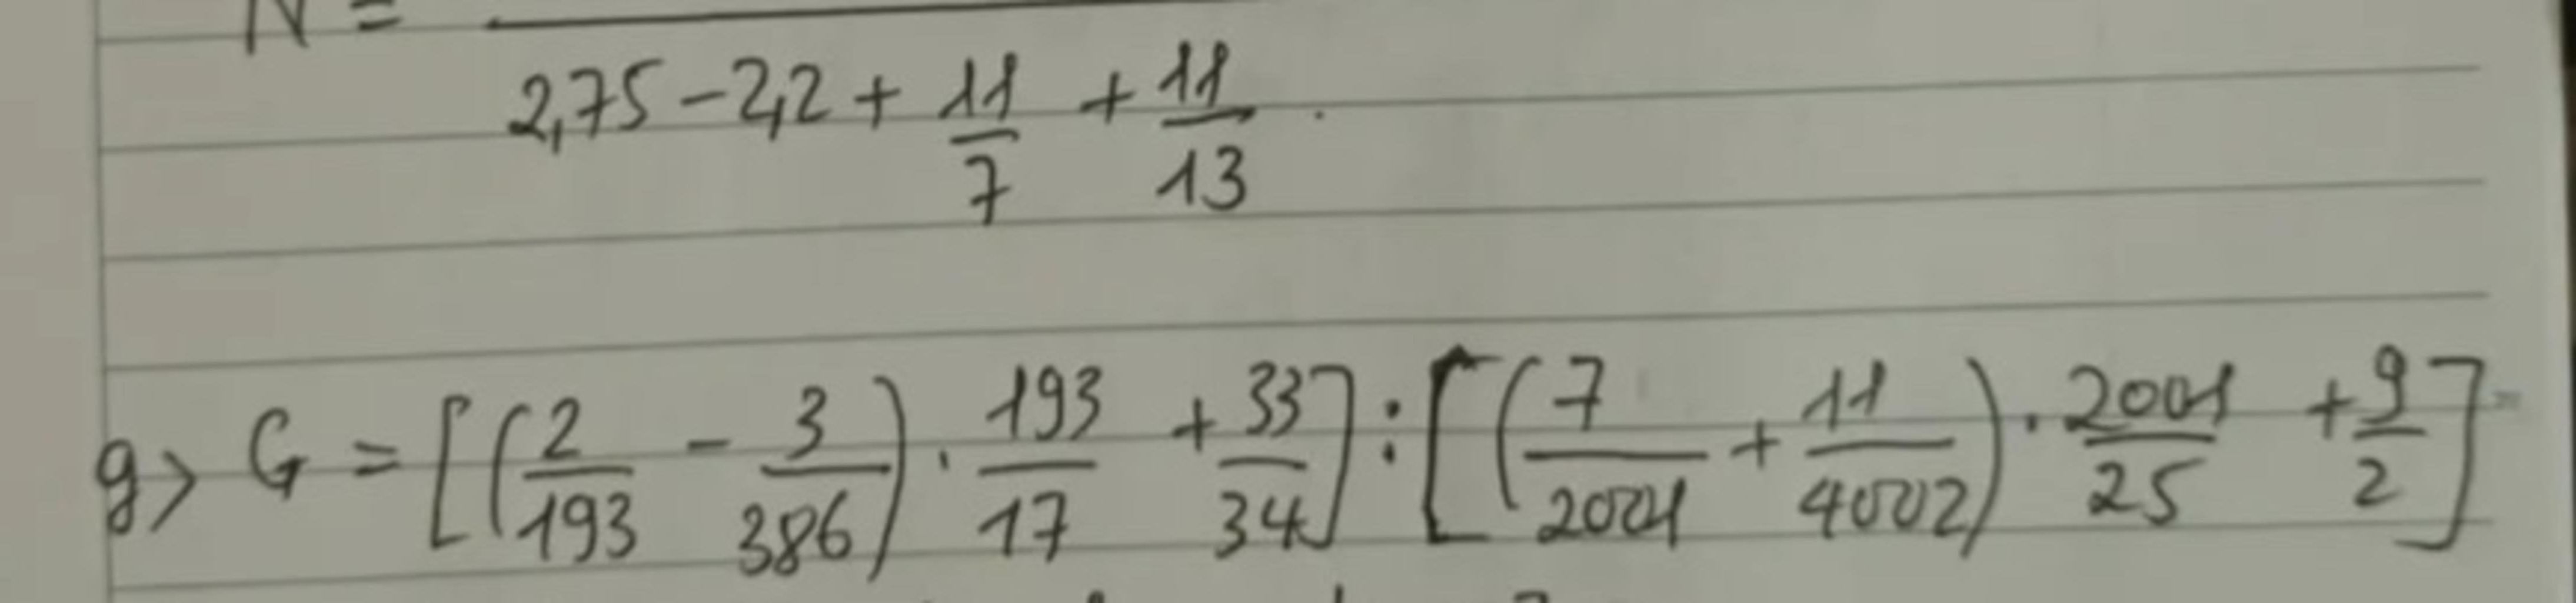 N = ―
2,75 - 2,2 + 11/7 + 11/13 .
g> G = [(2/193 - 3/386) . 193/17 + 33/34] : [(7/2001 + 11/4002) . 2001/25 + 9/2] =